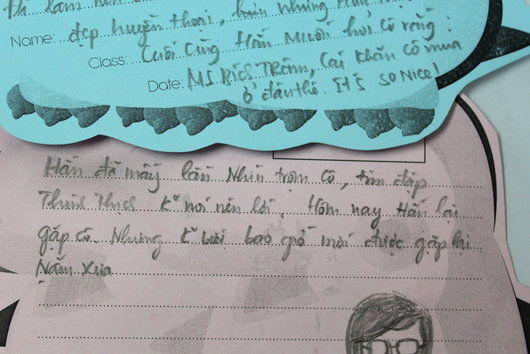 Thì làm nên
Name: đẹp huyền thoại, hơn những
Class: Cuối Cùng Hắn Mười hỏi cô rằng
Date: MS BÍCH TRÂM, Cái Khăn cô mua
ở đâu thế. It's so Nice!
Hắn đã mấy lần Nhìn trộm cô, tim đập
Thình Thịch k nói nên lời. Hôm nay Hắn lại
gặp cô. Nhưng k biết bao giờ mới được gặp lại
Năm Xưa